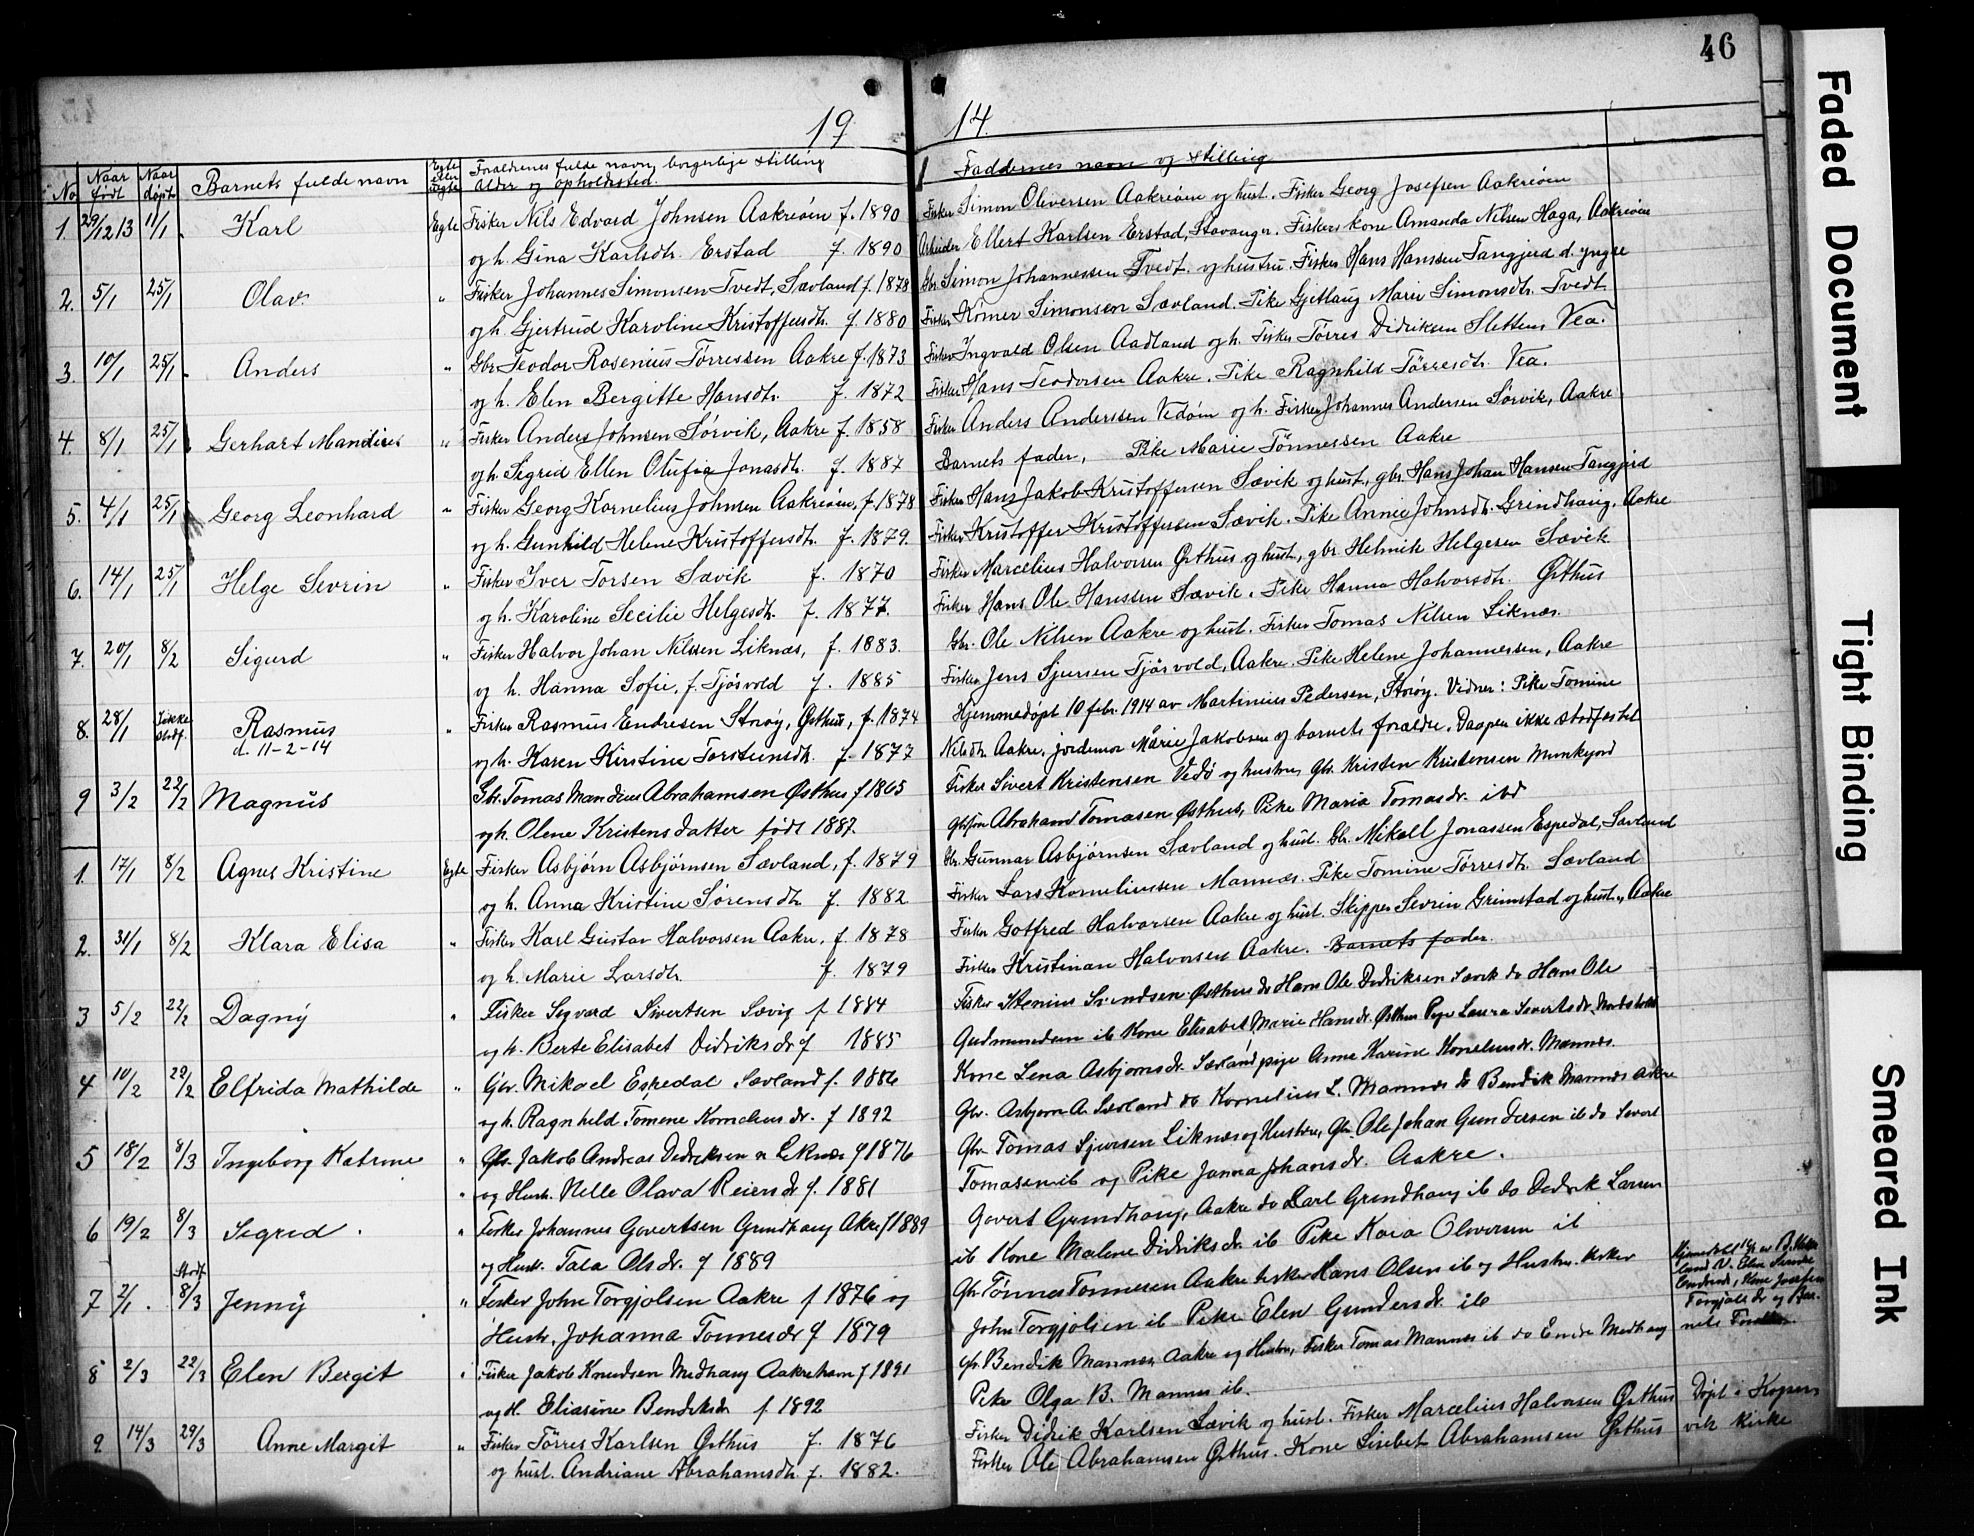 46
19 14.
No Naar født Naar døpt Barnets fulde navn Egte eller uegte Forældrenes fulde navn, borgerlige stilling Alder og opholdssted. Faddernes navn og stilling
1. 29/12 13 11/1 Karl Egte Fisker Nils Edvard Johnsen Aakreøen f. 1890 Fisker Simon Oliversen Aakreøen og hust. Fisker Georg Josefsen Aakreøen
og h. Gina Karlsdtr. Erstad f. 1890 Arbeider Ellert Karlsen Erstad, Stavanger. Fiskers kone Amanda Nilsen Haga, Aakreøen
2. 5/1 25/1 Olav " Fisker Johannes Simonsen Tvedt, Sævland f. 1878 Gbr. Simon Johannessen Tvedt og hustru. Fisker Hans Hanssen Tangjerd d. yngre
og h. Gjertrud Karoline Kristoffersdtr. f. 1880 Fisker Kòrner Simonsen Sævland. Pike Gjetlaug Marie Simonsdtr. Tvedt
3. 10/1 25/1 Anders " Gbr. Teodor Rosenius Tørressen Aakre f. 1873 Fisker Ingvald Olsen Aadland og h. Fisker Tørres Didriksen Sletten, Vea.
og h. Elen Bergitte Hansdtr. f. 1872 Fisker Hans Teodorsen Aakre. Pike Ragnhild Tørresdtr. Vea.
4. 8/1 25/1 Gerhart Mandius " Fisker Anders Johnsen Sørvik, Aakre f. 1858 Fisker Anders Anderssen Vedøen og h. Fisker Johannes Andersen Sørvik, Aakre
og h. Sigrid Ellen Olufia Jonasdtr. f. 1887 Barnets fader, Pike Marie Tønnessen Aakre
5. 4/1 25/1 Georg Leonhard " Fisker Georg Kornelius Johnsen Aakreøen, f. 1878 Fisker Hans Jakob Kristoffersen Sævik og hust., gbr. Hans Johan Hansen Tangjerd
og h. Gunhild Helene Kristoffersdtr. f. 1879. Fisker Kristoffer Kristoffersen Sævik. Pike Annie Johnsdtr. Grindhaug, Aakre
6. 14/1 25/1 Helge Sevrin " Fisker Iver Torsen Sævik f. 1870 Fisker Marcelius Halvorsen Østhus og hust., gbr. Helmik Helgesen Sævik
og h. Karoline Secilie Helgesdtr. f. 1877. Fisker Hans Ole Hanssen Sævik. Pike Hanna Halvorsdtr. Østhus
7. 20/1 8/2 Sigurd " Fisker Halvor Johan Nilssen Liknæs, f. 1883. Gbr. Ole Nilsen Aakre og hust. Fisker Tomas Nilsen Liknæs.
og h. Hanna Sofie, f. Tjøsvold f. 1885 Fisker Jens Sjursen Tjøsvold, Aakre. Pike Helene Johannessen, Aakre
8. 28/1 Ikke stadf. Rasmus " Fisker Rasmus Endresen Storøy, Østhus, f. 1874 Hjemmedøpt 10 febr. 1914 av Martinius Pedersen, Storøy. Vidner: Pike Tomine
d. 11-2-14 og h. Karen Kirstine Torstensdtr. f. 1877 Nilsdtr. Aakre, jordemor Marie Jakobsen og barnets forældre. Daapen ikke stadfæstet
9 3/2 22/2 Magnus Gbr. Tomas Mandius Abrahamsen Østhus f 1865 Fisker Sivert Kristensen Vedø og hustru, Gbr. Kristen Kristensen Munkejord
og h. Olene Kristens datter født 1887. Abraham Tomasen Østhus, Pike Maria Tomasdr. ibd
1. 17/1 8/2 Agnes Kristine Egte Fisker Asbjørn Asbjørnsen Sævland, f. 1879 Gbr. Gunnar Asbjørnsen Sævland og hust. Gbr. Mikall Jonassen Espedal, Sævland
og h. Anna Kristine Sørensdtr. f. 1882 Fisker Lars Korneliussen Mannæs. Pike Tomine Tørresdtr. Sævland
2. 31/1 8/2 Klara Elisa " Fisker Karl Gustav Halvorsen Aakre, f. 1878 Fisker Gotfred Halvorsen Aakre og hust. Skipper Sevrin Grimstad og hust., Aakre
og h. Marie Larsdtr. f. 1879 Fisker Kristinan Halvorsen Aakre. Barnets fader.
3 5/2 22/2 Dagny " Fisker Sigvard Sivertsen Sævig f 1884 Fisker Stenius Svendsen Østhus do Hans Ole Didriksen Sævik do Hans Ole
og h. Berte Elisabet Didriksdr f 1885 Gudmundsen ib Kone Elisabet Marie Hansdr. Østhus Pige Laura Sivertsdr.
4 10/2 22/2 Elfrida Mathilde " Gbr. Mikael Espedal Sævland f. 1886 Kone Lena Asbjørnsdr. Sævland pige Anne Karine Korneliusdr. Mannes.
og h. Ragnhild Tomene Kornelius dr. f 1892 Gbr. Asbjørn A. Sævland do Kornelius L. Mannes do Bendik Mannes Akre
5 18/2 8/3 Ingeborg Katrine " Gbr. Jakob Andreas Didriksen Liknæs f 1876 Gbr Tomas Sjursen Liknæs og Hustru, Gbr. Ole Johan Gundersen ib do Severt
" og Hust. Nelle Olava Reiersdr f. 1881 Tomasen ib og Pike Janna Johansdr. Aakre.
6 19/2 8/3 Sigrid " Fisker Johannes Govertsen Grindhaug Akre f 1889 Govert Grindhaug, Aakre do Karl Grindhaug ib do Didrik Larsen
og Hust. Tala Olsdr. f 1889 ib Kone Malene Didriksdr. ib Pike Kaia Oliversen ib
7 2/1 Stadf. 8/3 Jenny " Fisker John Torgjølsen Aakre f 1876 og Gbr Tønnes Tønnesen Aakre Fisker Hans Olsen ib og Hustru. Fisker
Hust. Johanna Tønnesdr f 1879 John Torgjølsen ib Pike Elen Gundersdr. ib
Kone Josefine
Torgjølsdr og Bar-
nets
8 2/3 22/3 Elen Bergit " Fisker Jakob Knudsen Medhaug Aakrehamn f 1891 Gbr. Bendik Mannes, Aakre og Hustru, Fisker Tomas Mannes ib do Endre Medhaug
og H. Eliasine Bendiksdr f 1892 Pike Olga B. Mannes ib.
9 14/3 29/3 Anne Margit " Fisker Tørres Karlsen Østhus f. 1876 Fisker Didrik Karlsen Sævik og hust. Fisker Marcelius Halvorsen Østhus Døpt i Koper-
og hust. Andriane Abrahamsdtr. f. 1882. Fisker Ole Abrahamsen Østhus. Kone Lisebet Abrahamsen Østhus vik kirke
Faded Document
Tight Binding
Smeared Ink